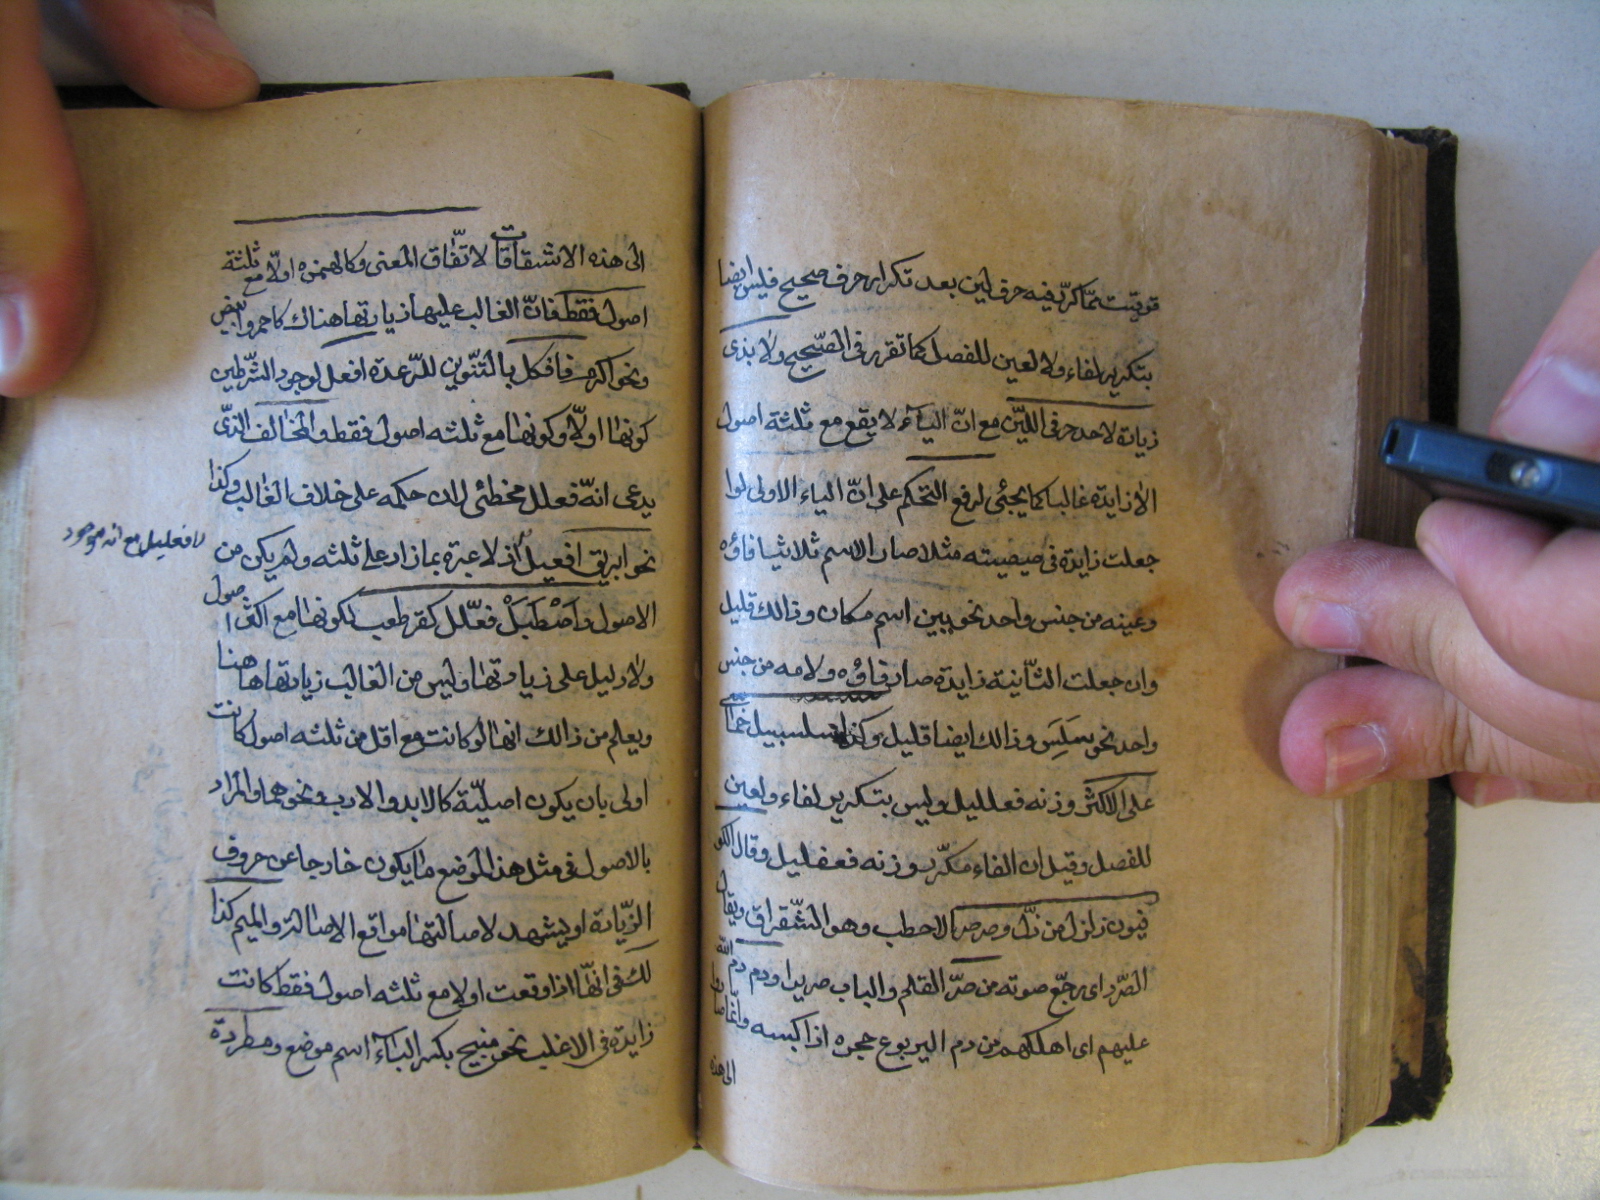 قوقيت مما كرّر فيه حرف لين بعد تكرار حرف صحيح فليس ايضا
بتكرير لفاء ولا لعين للفصل كما تقرر فى الصّحيح ولا بذى
زيادة لاحد حرفى اللّين مع انّ الياء لا يقع مع ثلثة اصول
الا زايدة غالبا كما يجيئ لدفع التحكم على انّ الياء الاولى لوا
جعلت زايدة فى صيصيته مثلا صار الاسم ثلاثيا فاؤه
وعينه من جنس واحد نحو ببين اسم مكان وذالك قليل
وان جعلت الثّانية زايدة صار فاؤه ولامه من جنس
واحد نحو سَلِسَ وذالك ايضا قليل وكذا سلسبيل خماسى
على الاكثر وزنه فعلليل وليس بتكرير لفاء ولعين
للفصل وقيل ان الفاء مكرّر وزنه فعفليل وقال الكو
فيون زلزل من زلّ وصرصر الاخطب وهو الشّقراق ويقال
الصّرد اى رجّع صوته من صرّ القلم والباب صريرا ودمدم الله
عليهم اى اهلكهم من دم اليربوع حجره اذا كبسه وانّما صاروا
الى هذه
الى هذه الاشتقاقات لاتّفاق المعنى وكالهمزه اولا مع ثلثة
اصول فقط فانّ الغالب عليها زيادتها هناك كاحمر وابيض
ونحو اكرم فافكل بالتّنوين للرّعدة افعل لوجود الشّرطين
كونها اولا وكونها مع ثلثه اصول فقط والمخالف الذّى
يدعى انه فعلل مخطئى لان حكمه على خلاف الغالب وكذا
نحو ابريق افعيل اذ لا عبرة بما زاد على ثلثه ولم يكن من
لا فعليل مع انه موجود
الاصول واصْطَبْلْ فعللل كقرطعب لكونها مع اكثر اصول
ولا دليل على زيادتها وليس من الغالب زيادتها هنا
ويعلم من ذالك انها لو كانت مع اقل من ثلثه اصول كانت
اولى بان يكون اصليّة كالابد والادب ونحوهما والمراد
بالاصول فى مثل هذا الموضع ما يكون خارجا عن حروف
الزّيادة او يشهد لاصالتها مواقع الاصالة والميم كذا
لك فى انّها اذا وقعت اولا مع ثلثه اصول فقط كانت
زايدة فى الاغلب نحو منبج بكسر الباء اسم موضع ومطردة